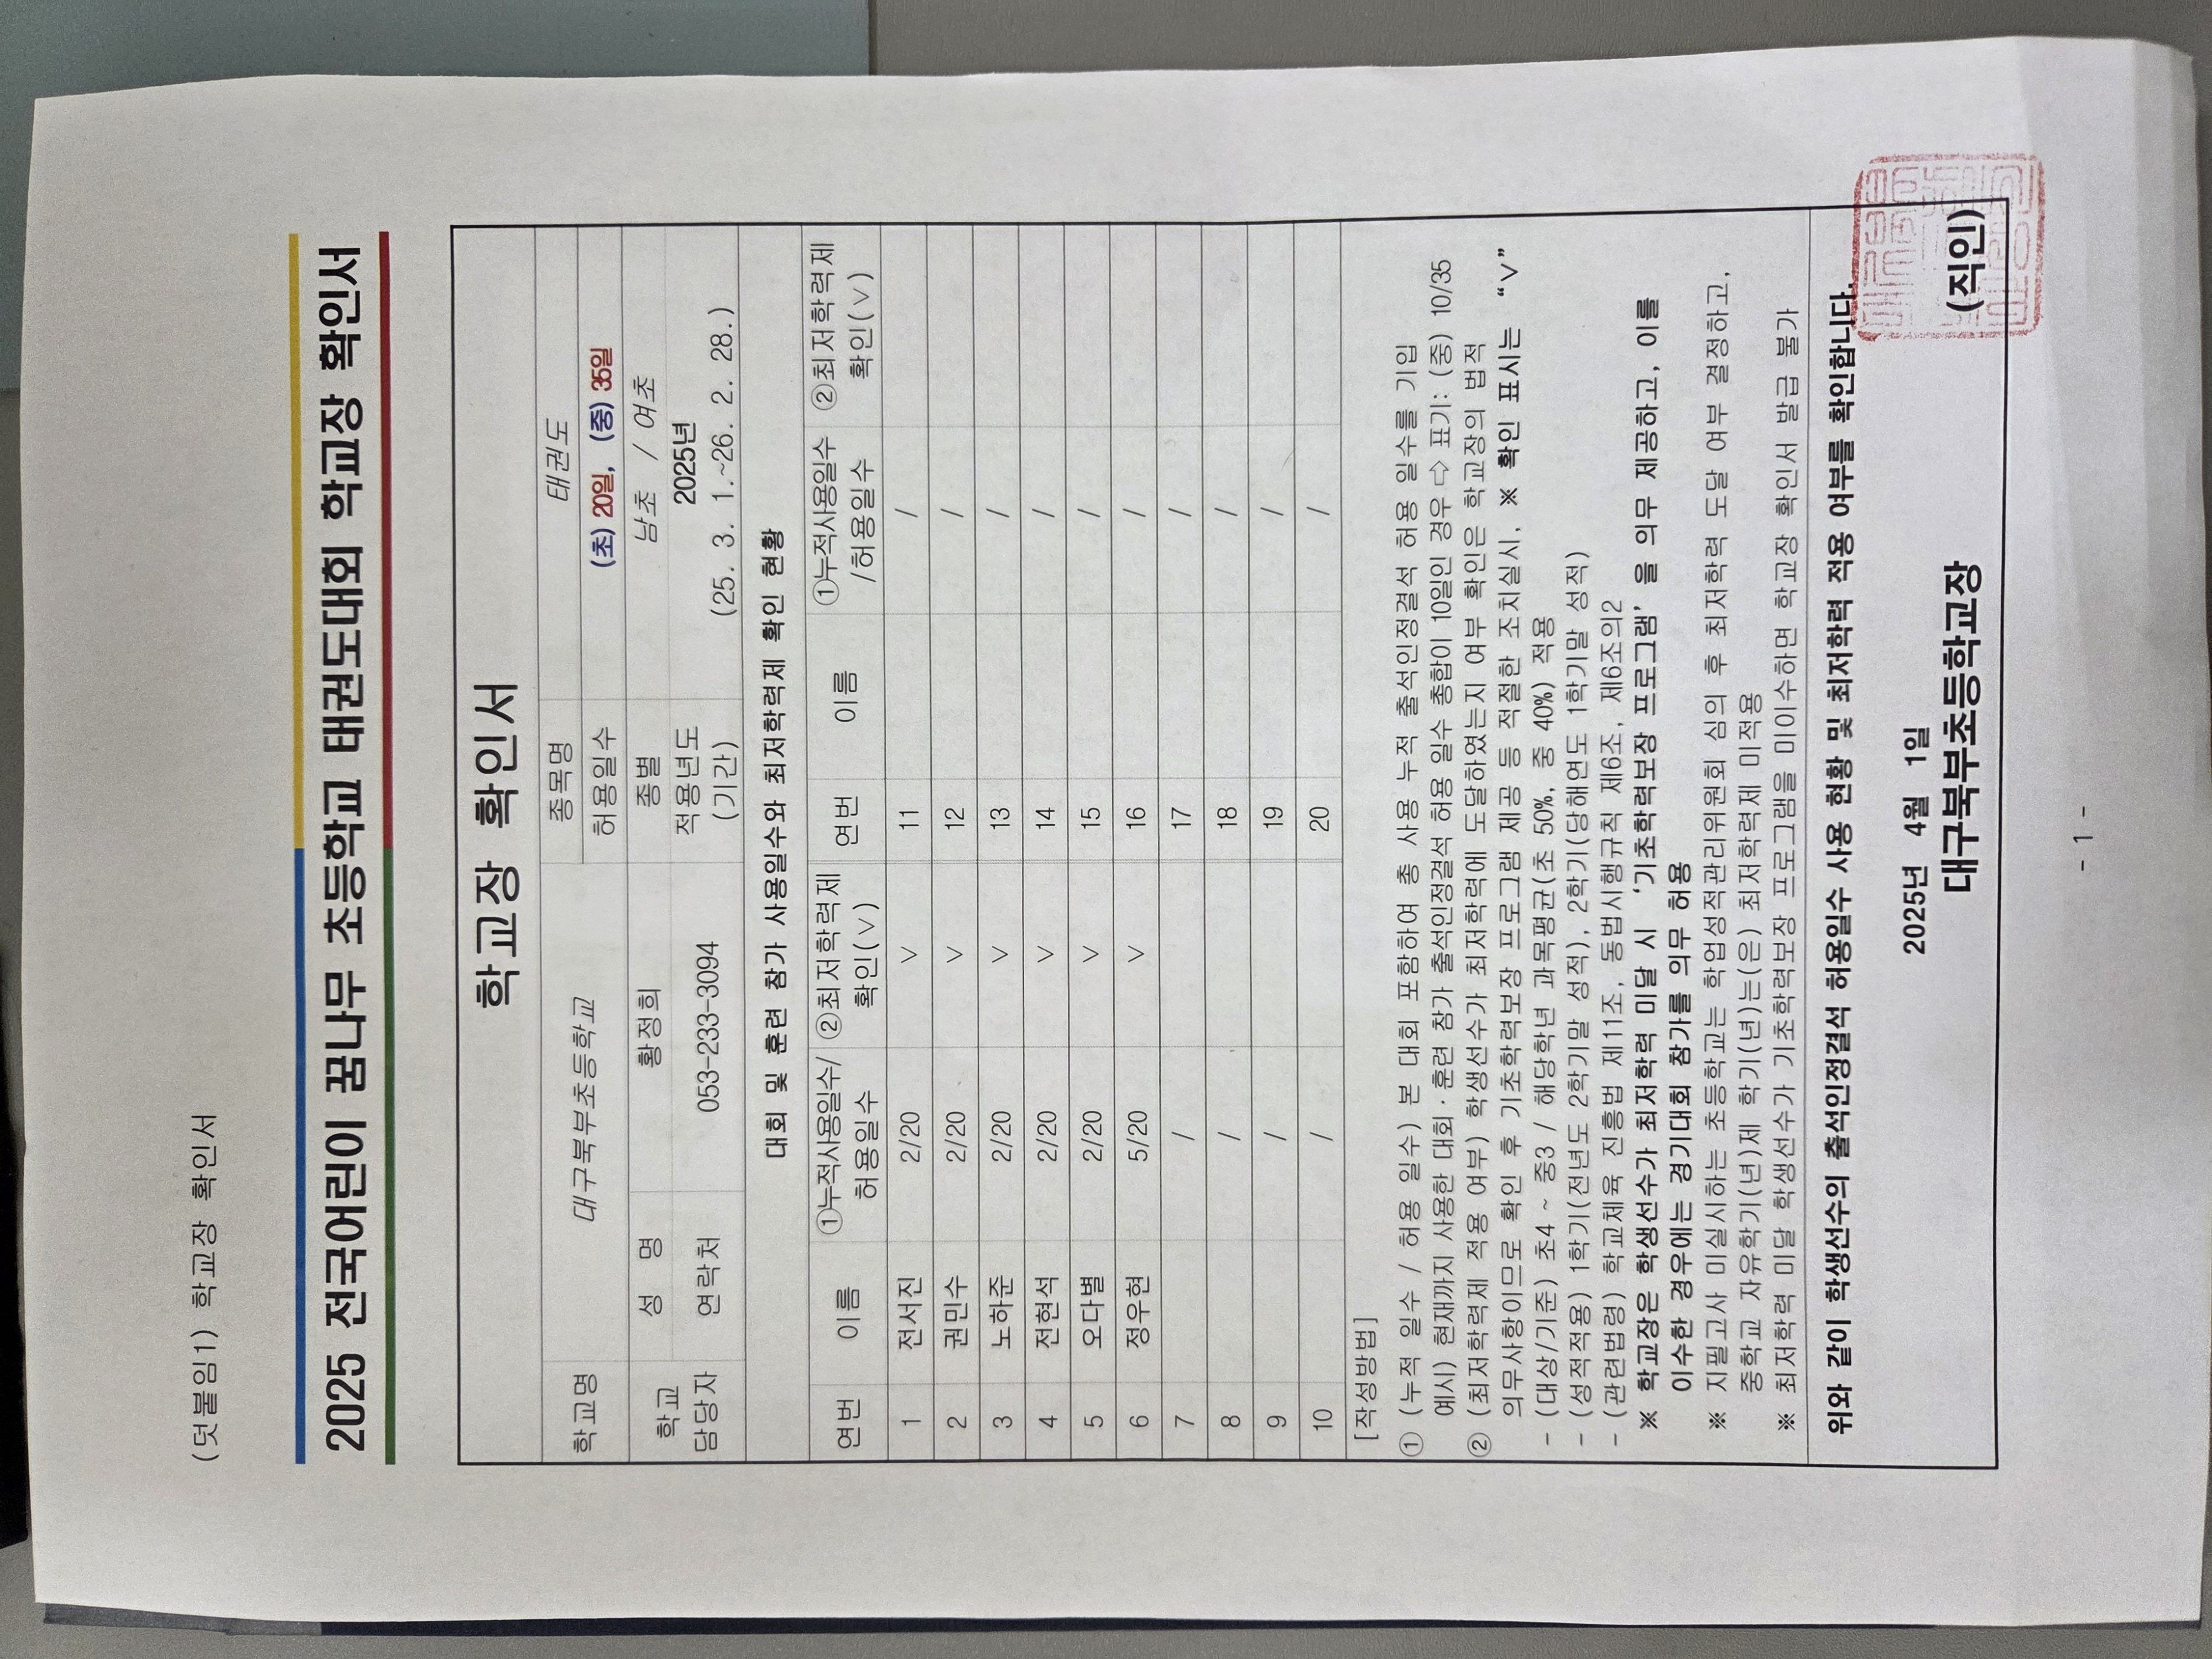 (덧붙임1) 학교장 확인서
2025 전국어린이 꿈나무 초등학교 태권도대회 학교장 확인서
학교장 확인서
학교명 대구북부초등학교 종목명 태권도
허용일수 (초) 20일, (중) 35일
학교 담당자 성 명 황정희 종별 남초 / 여초
연락처 053-233-3094 적용년도 (기간) 2025년
(25. 3. 1.~26. 2. 28.)
대회 및 훈련 참가 사용일수와 최저학력제 확인 현황
연번 이름 ①누적사용일수/허용일수 ②최저학력제 확인(∨) 연번 이름 ①누적사용일수/허용일수 ②최저학력제 확인(∨)
1 전서진 2/20 ∨ 11 /
2 권민수 2/20 ∨ 12 /
3 노하준 2/20 ∨ 13 /
4 전현석 2/20 ∨ 14 /
5 오다별 2/20 ∨ 15 /
6 정우현 5/20 ∨ 16 /
7 / 17 /
8 / 18 /
9 / 19 /
10 / 20 /
[작성방법]
① (누적 일수 / 허용 일수) 본 대회 포함하여 총 사용 누적 출석인정결석 허용 일수를 기입
예시) 현재까지 사용한 대회·훈련 참가 출석인정결석 허용 일수 총합이 10일인 경우 ⇨ 표기: (중) 10/35
② (최저학력제 적용 여부) 학생선수가 최저학력에 도달하였는지 여부 확인은 학교장의 법적
의무사항이므로 확인 후 기초학력보장 프로그램 제공 등 적절한 조치실시, ※ 확인 표시는 “∨”
- (대상/기준) 초4 ~ 중3 / 해당학년 과목평균(초 50%, 중 40%) 적용
- (성적적용) 1학기(전년도 2학기말 성적), 2학기(당해연도 1학기말 성적)
- (관련법령) 학교체육 진흥법 제11조, 동법시행규칙 제6조, 제6조의2
※ 학교장은 학생선수가 최저학력 미달 시 ‘기초학력보장 프로그램’을 의무 제공하고, 이를
이수한 경우에는 경기대회 참가를 의무 허용
※ 지필고사 미실시하는 초등학교는 학업성적관리위원회 심의 후 최저학력 도달 여부 결정하고,
중학교 자유학기(년)제 학기(년)는(은) 최저학력제 미적용
※ 최저학력 미달 학생선수가 기초학력보장 프로그램을 미이수하면 학교장 확인서 발급 불가
위와 같이 학생선수의 출석인정결석 허용일수 사용 현황 및 최저학력 적용 여부를 확인합니다.
2025년 4월 1일
대구북부초등학교장 (직인)
- 1 -